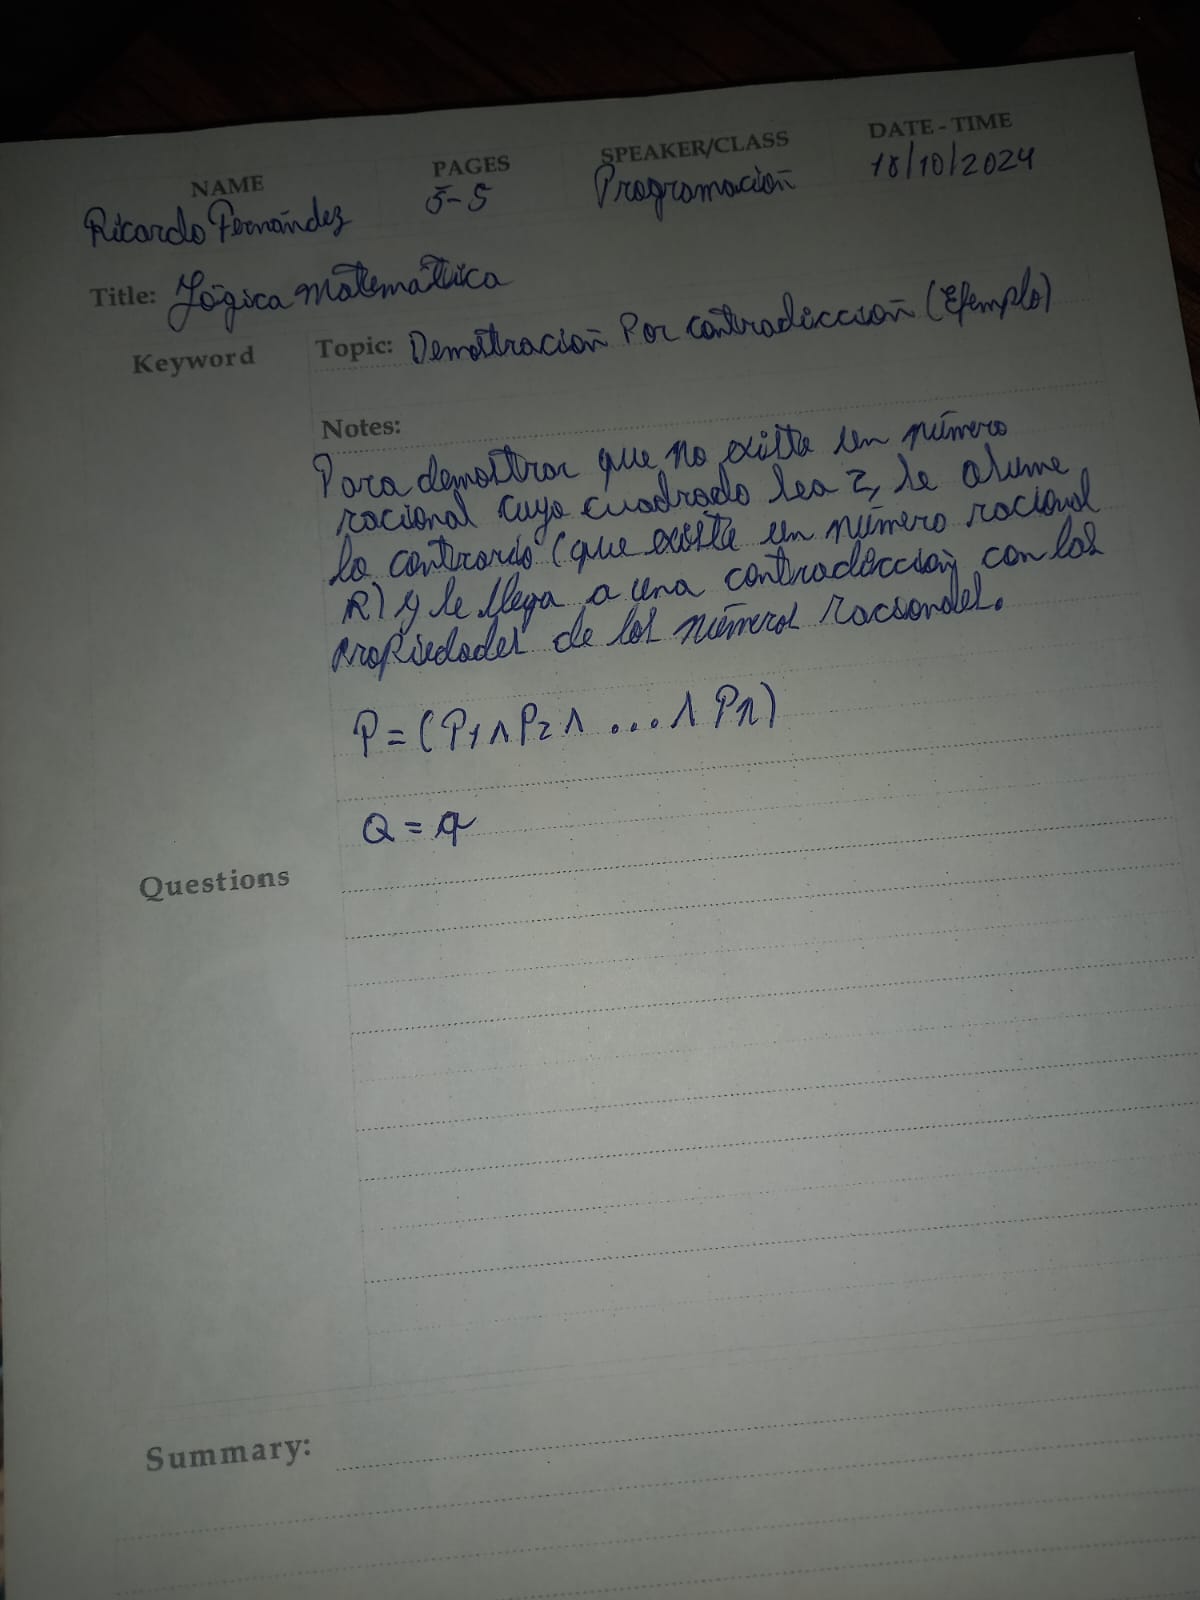 NAME PAGES SPEAKER/CLASS DATE-TIME
Ricardo Fernández 5-5 Programación 18/10/2024
Title: Lógica matemática
Keyword Topic: Demostración Por contradicción (Ejemplo)
Notes:
Para demostrar que no existe un número
racional cuyo cuadrado sea 2, se asume
lo contrario (que existe un número racional
R) y se llega a una contradicción con las
propiedades de los números racionales.
P = (P1 ∧ P2 ∧ ... ∧ Pn)
Q = q
Questions
Summary: